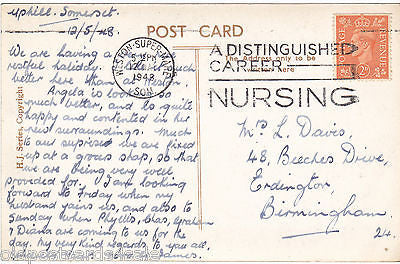 Uphill. Somerset
12/5/48
POST CARD
We are having a
restful holiday.
much better.
Angela is looking so
much better, and is quite
happy and contented in her
new surroundings. Much
to our suprise we are fixed
up at a grous shop, so that
we are being very well
provided for. I am looking
forward to Friday when my
husband joins us, and also to
Sunday when Phyllis, Chas, Graham
& Diana are coming to us for the
day. My very kind regards to you all.
H.J. Series, Copyright
WESTON-SUPER-MARE
12 MY
1948
SOM
The Address only to be
Written here
A DISTINGUISHED
CAREER
NURSING
POSTAGE
REVENUE
Mrs L. Davis,
48, Beeches Drive,
Erdington,
Birmingham
24.
oldpostcards4sale